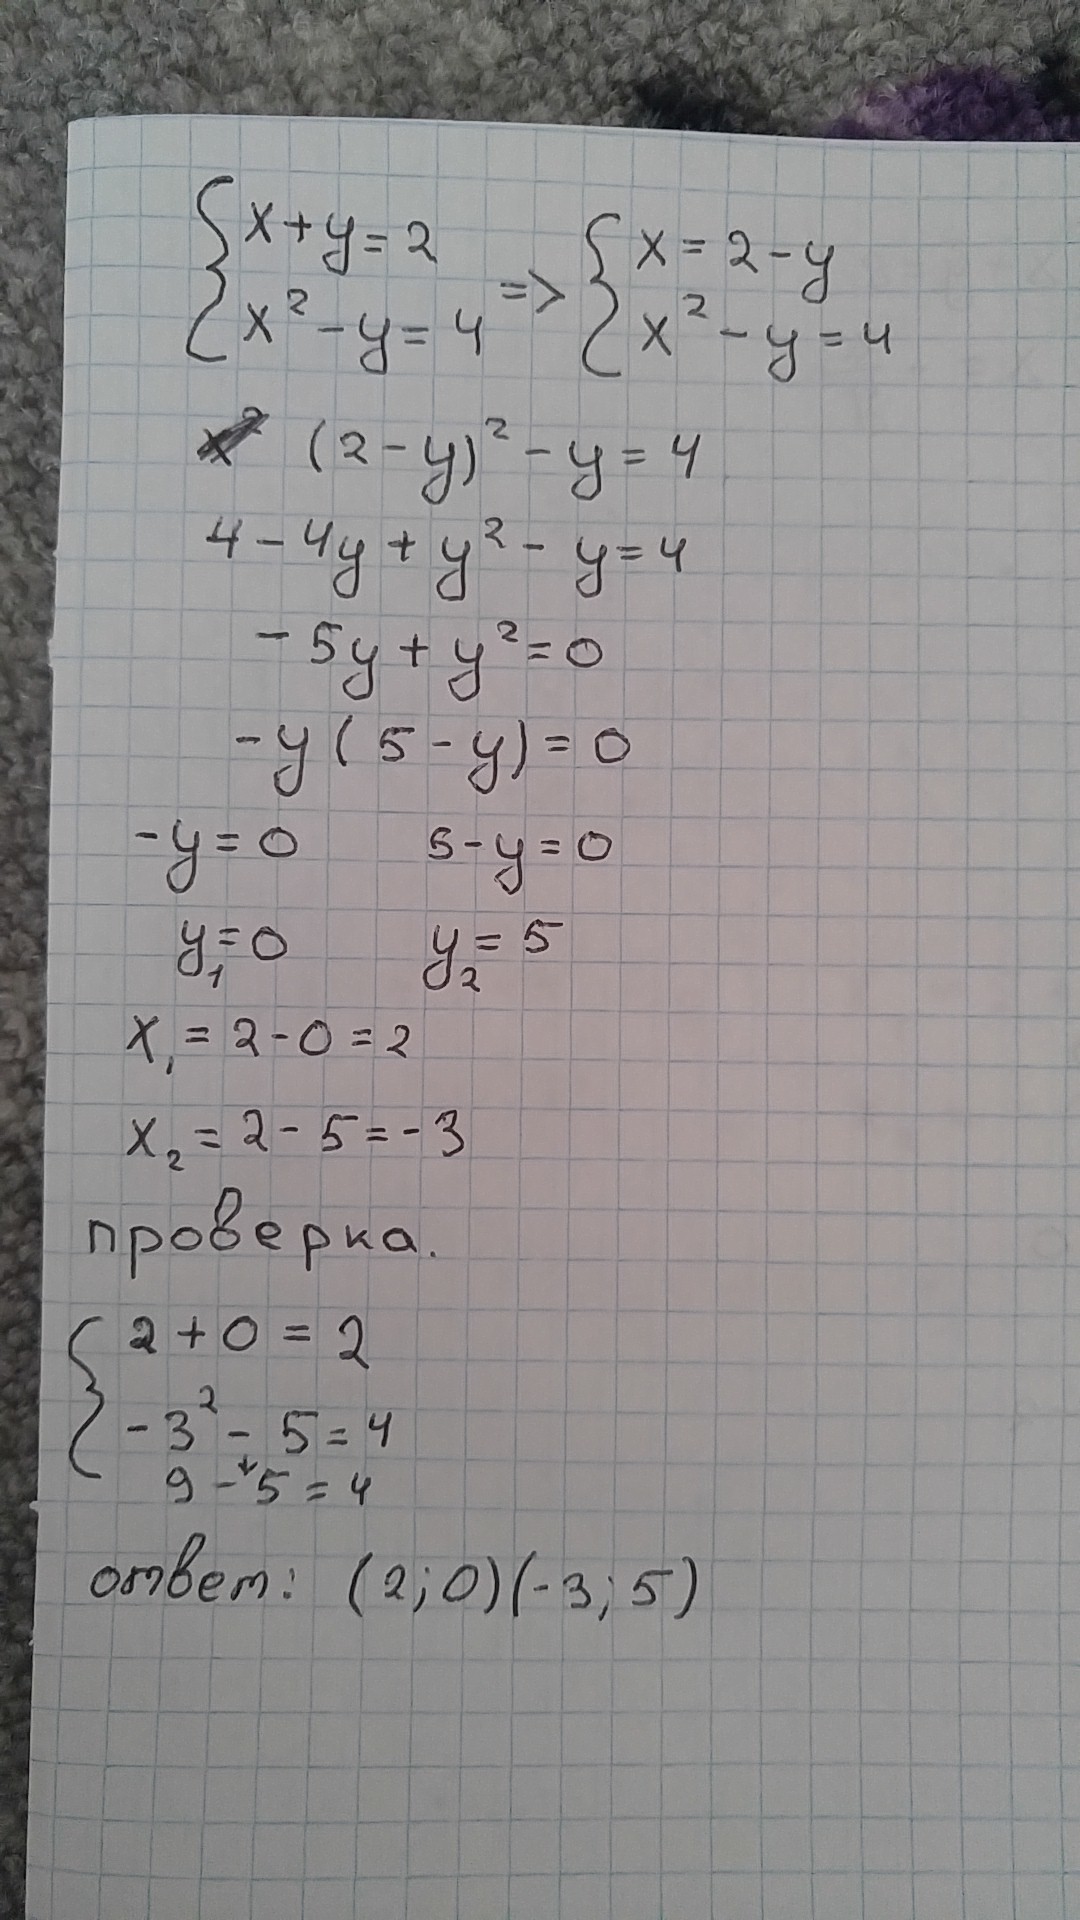 { x+y=2 => { x=2-y
{ x²-y=4 { x²-y=4
(2-y)²-y=4
4-4y+y²-y=4
-5y+y²=0
-y(5-y)=0
-y=0 5-y=0
y₁=0 y₂=5
x₁=2-0=2
x₂=2-5=-3
проверка.
{ 2+0=2
{ -3²-5=4
9-5=4
ответ: (2;0)(-3;5)